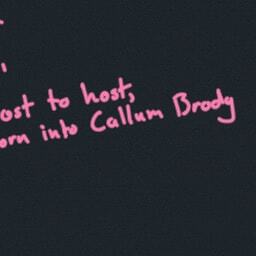 ost to host,
orn into Callum Brody